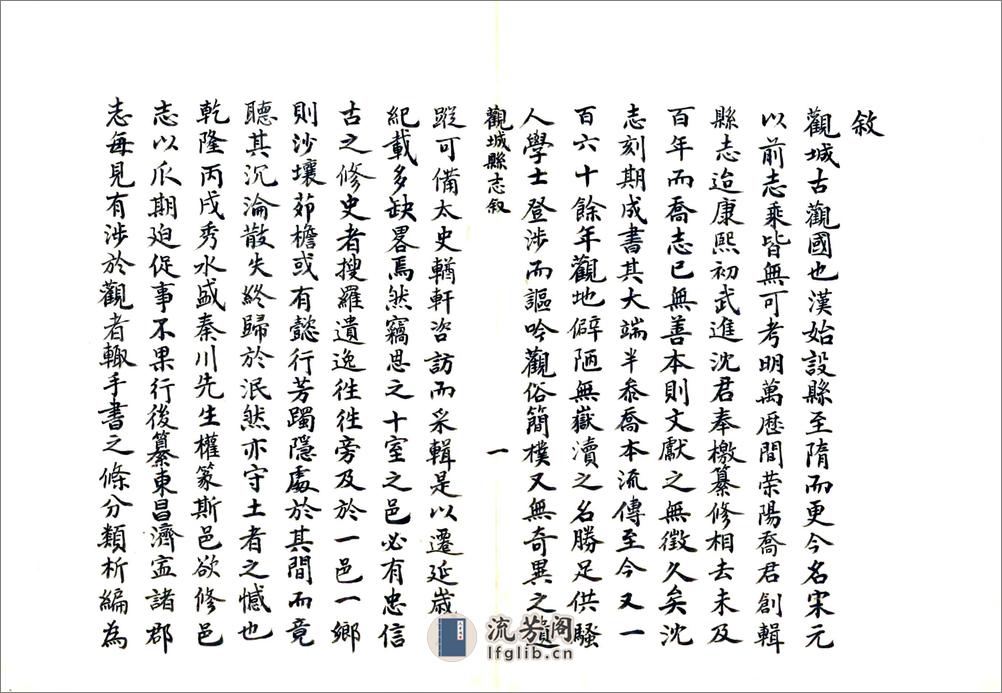 敘
觀城古觀國也漢始設縣至隋而更今名宋元
以前志乘皆無可考明萬歷間荣陽喬君創輯
縣志迨康熙初武進沈君奉檄纂修相去未及
百年而喬志已無善本則文獻之無徵久矣沈
志刻期成書其大端半叅喬本流傳至今又一
百六十餘年觀地僻陋無嶽瀆之名勝足供騷
人學士登涉而謳吟觀俗簡樸又無奇異之
觀城縣志敘
一
蹤可備太史輶軒咨訪而采輯是以遷延歲
紀載多缺畧焉然竊思之十室之邑必有忠信
古之修史者搜羅遺逸徃徃旁及於一邑一鄉
則沙壤茆檐或有懿行芳躅隱處於其間而竟
聽其沉淪散失終歸於泯然亦守土者之憾也
乾隆丙戌秀水盛秦川先生權篆斯邑欲修邑
志以爪期廹促事不果行後纂東昌濟寍諸郡
志每見有涉於觀者輙手書之條分類析編為
流芳阁
lfglib.cn